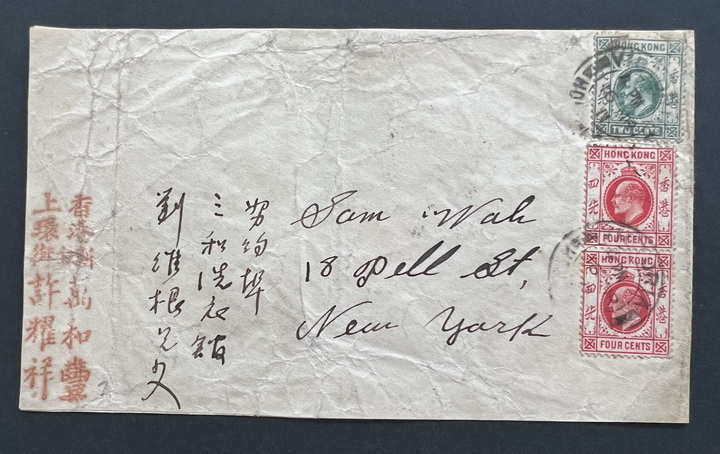 HONG KONG
香港
TWO CENTS
HONG KONG
四先
香港
FOUR CENTS
HONG KONG
四先
香港
FOUR CENTS
Sam Wah
18 Pell St,
New York
努約埠
三和洗衣舘
劉維根兄收
香港 萬和豐
上環街許耀祥